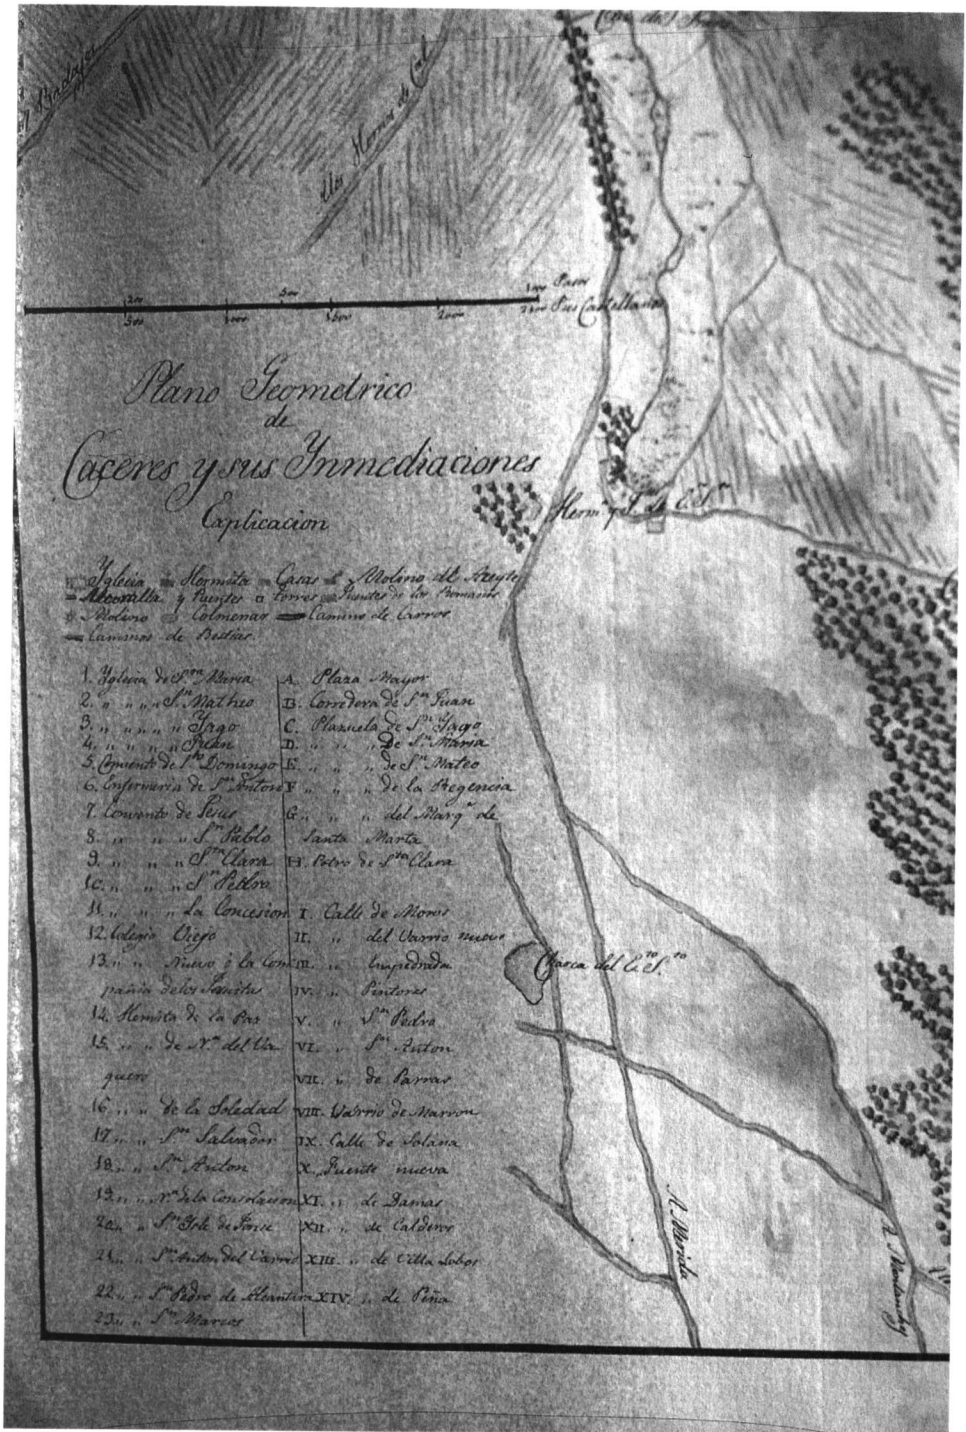 A Badajoz
A los Hornos de Cal
200 500 1000 Pasos
500 1000 1500 2000 2500 Pies Castellanos
Plano Geometrico
de
Caçeres y sus Ynmediaciones
Explicacion
Yglecia Hermita Casas Molino de Azeyte
y Puentes torres Fuentes de los Romanos
Molino Colmenar Camino de Carros.
Caminos de Bestias.
1. Yglecia de S.ta Maria
2. „ „ „ S.n Matheo
3. „ „ „ „ Yago
4. „ „ „ „ Juan
5. Convento de S.to Domingo
6. Enfermeria de S.n Anton
7. Convento de Jesus
8. „ „ „ S.n Pablo
9. „ „ „ S.ta Clara
10. „ „ „ S.n Pedro
11. „ „ „ La Concesion
12. Colegio Viejo
13. „ „ Nuevo ó la Com
pañia de los Jesuitas
14. Hermita de la Paz
15. „ „ de N.a del Va
quero
16. „ „ de la Soledad
17. „ „ S.n Salvador
18. „ „ S.n Anton
19. „ „ N.a de la Consolacion
20. „ „ S.n
21. „ „ S.n Anton del Varrio
22. „ „ S.n Pedro de Alcantara
23. „ „ S.n Marcos
A. Plaza Mayor
B. Corredera de S.n Juan
C. Plazuela de S.n Yago
D. „ „ „ De S.ta Maria
E. „ „ „ de S.n Mateo
F. „ „ „ de la Regencia
G. „ „ „ del Marq.s de
Santa Marta
H. Potro de S.ta Clara
I. Calle de Moros
II. „ del Varrio nuevo
III. „ Enpedrada
IV. „ Pintores
V. „ S.n Pedro
VI. „ S.n Anton
VII. „ de Parras
VIII. Varrio de Marron
IX. Calle de Solana
X. Fuente nueva
XI. „ de Damas
XII. „ de Calderos
XIII. „ de Villa Lobos
XIV. „ de Peña
Charca del E.to S.to
A. Merida